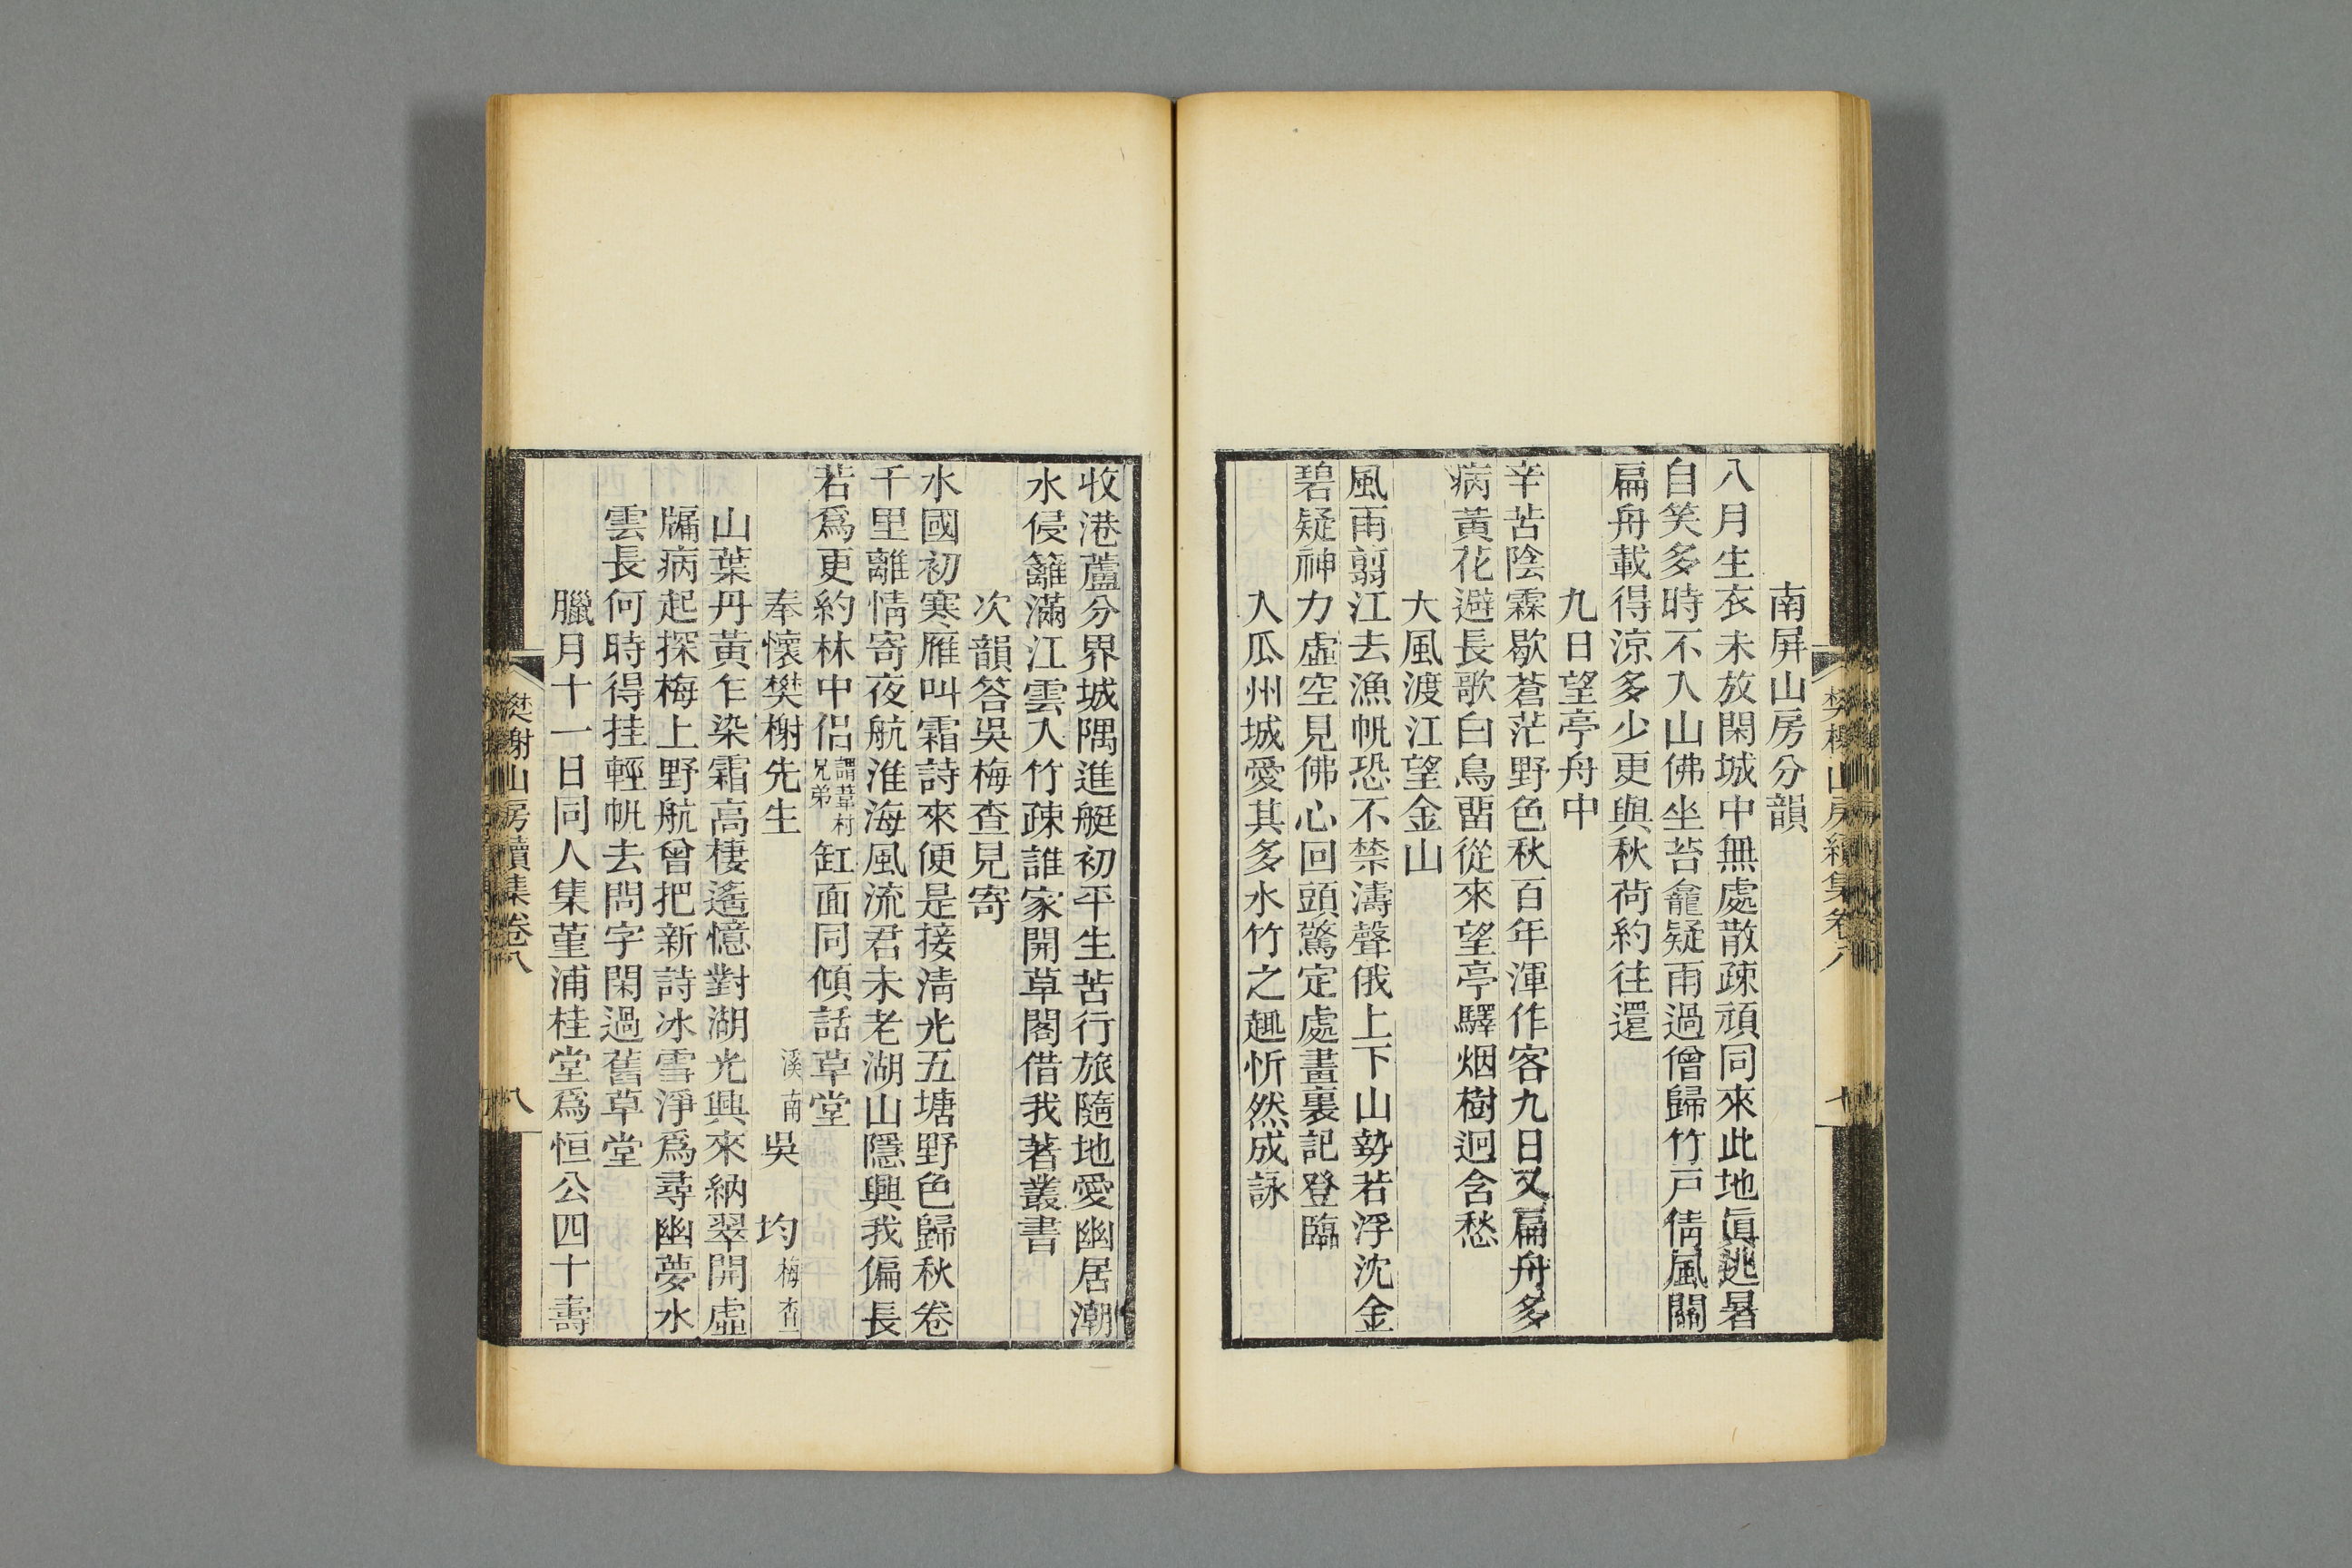 南屏山房分韻
八月生衣未放閑城中無處散疎頑同來此地眞逃暑
自笑多時不入山佛坐苔龕疑雨過僧歸竹戸倩風關
扁舟載得涼多少更與秋荷約往還
九日望亭舟中
辛苦陰霖歇蒼茫野色秋百年渾作客九日又扁舟多
病黃花避長歌白鳥畱從來望亭驛烟樹迥含愁
大風渡江望金山
風雨翦江去漁帆恐不禁濤聲俄上下山勢若浮沈金
碧疑神力虛空見佛心回頭驚定處畫裏記登臨
入瓜州城愛其多水竹之趣忻然成詠
收港蘆分界城隅進艇初平生苦行旅隨地愛幽居潮
水侵籬滿江雲入竹疎誰家開草閣借我著叢書
次韻答吳梅查見寄
水國初寒雁叫霜詩來便是接淸光五塘野色歸秋卷
千里離情寄夜航淮海風流君未老湖山隱興我偏長
若爲更約林中侶謂葦村兄弟缸面同傾話草堂
奉懷樊榭先生 溪南吳 均梅查
山葉丹黃乍染霜高棲遙憶對湖光興來納翠開虛
牖病起探梅上野航曾把新詩冰雪淨爲尋幽夢水
雲長何時得挂輕帆去問字閑過舊草堂
臘月十一日同人集堇浦桂堂爲恒公四十壽
樊榭山房續集卷八
八